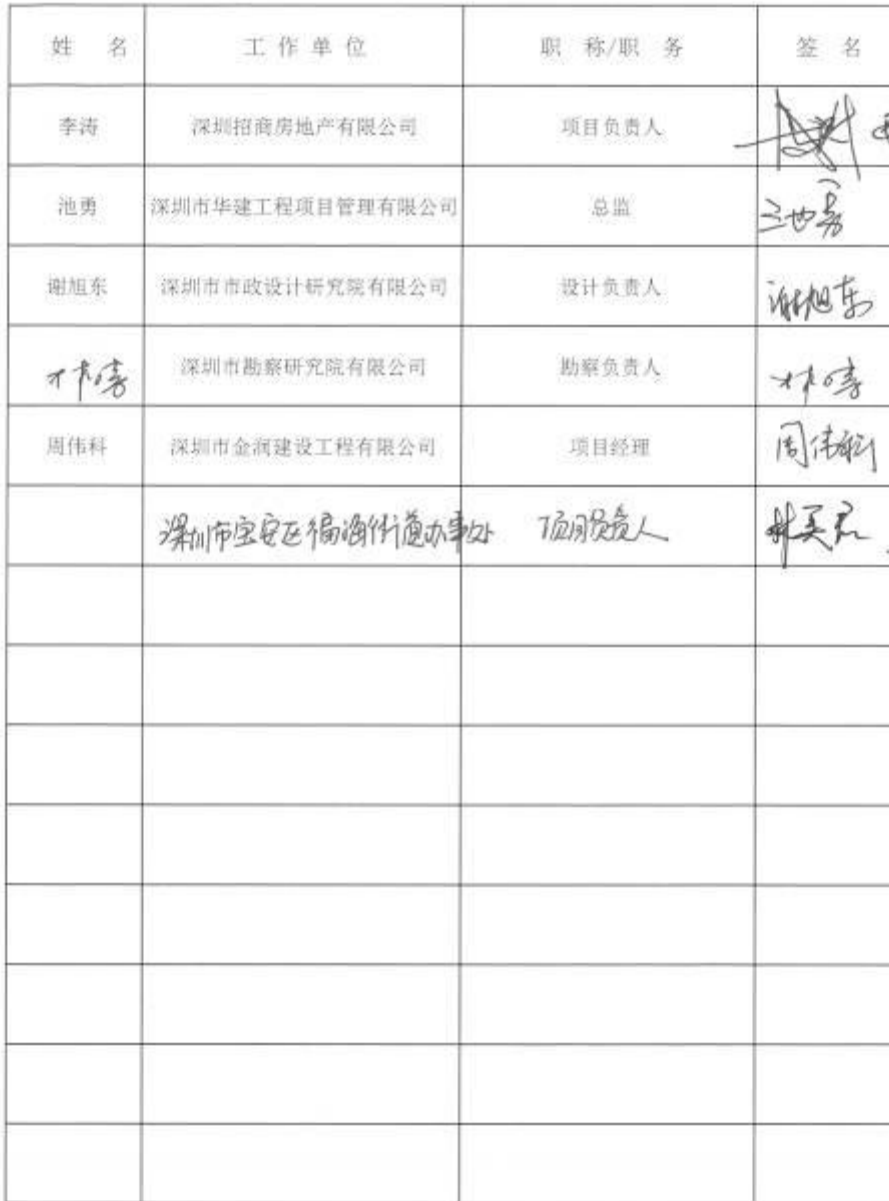 姓 名 工作单位 职 称/职 务 签 名
李涛 深圳招商房地产有限公司 项目负责人
池勇 深圳市华建工程项目管理有限公司 总监 池勇
谢旭东 深圳市市政设计研究院有限公司 设计负责人 谢旭东
深圳市勘察研究院有限公司 勘察负责人
周伟科 深圳市金润建设工程有限公司 项目经理 周伟科
深圳市宝安区福海街道办事处 项目负责人 林英君